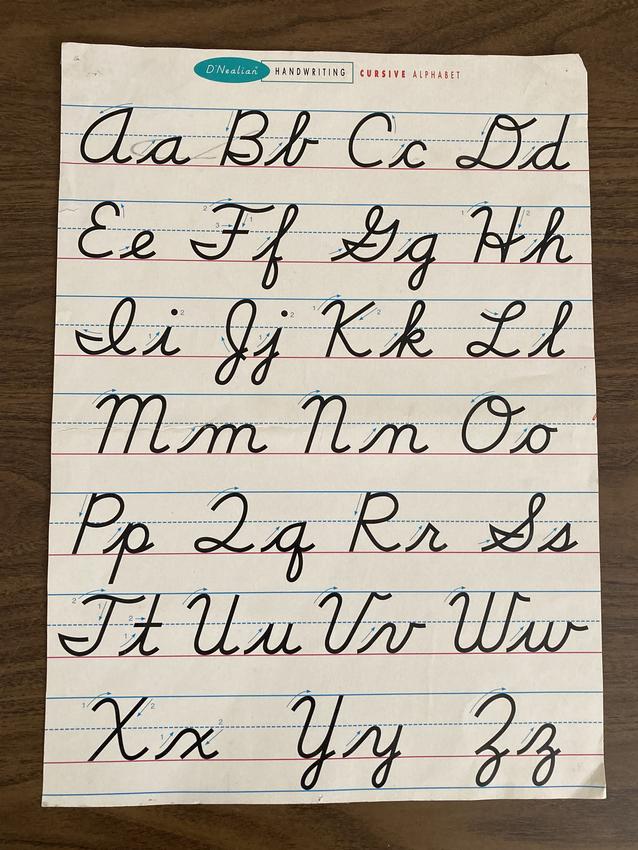 D'Nealian HANDWRITING CURSIVE ALPHABET
Aa Bb Cc Dd
Ee Ff Gg Hh
Ii Jj Kk Ll
Mm Nn Oo
Pp Qq Rr Ss
Tt Uu Vv Ww
Xx Yy Zz